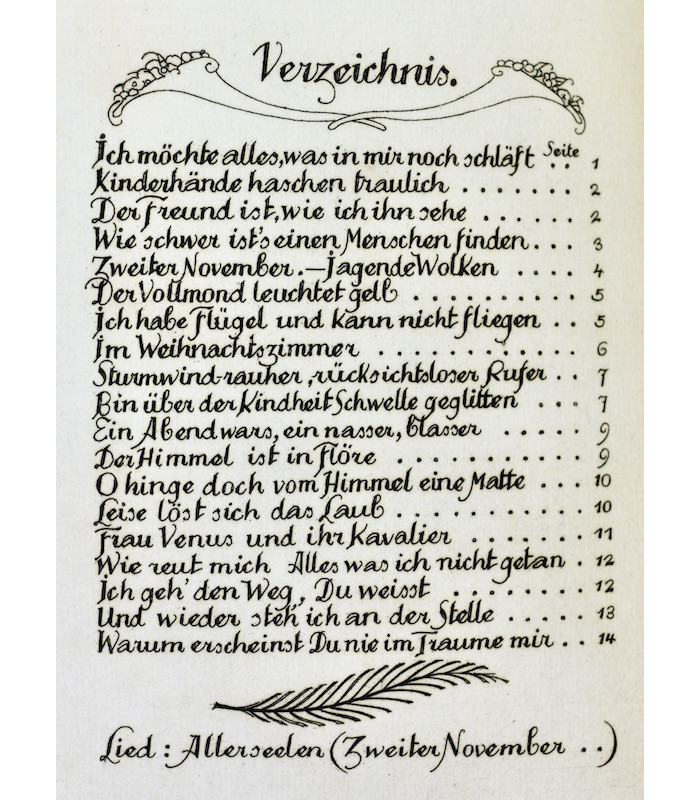 Verzeichnis.
Seite
Ich möchte alles, was in mir noch schläft . . 1
Kinderhände haschen traulich . . . . . . . 2
Der Freund ist, wie ich ihn sehe . . . . . . 2
Wie schwer ist's einen Menschen finden . . . 3
Zweiter November. — Jagende Wolken . . . . 4
Der Vollmond leuchtet gelb . . . . . . . . . . 5
Ich habe Flügel und kann nicht fliegen . . 5
Im Weihnachtszimmer . . . . . . . . . . . . 6
Sturmwind-rauher, rücksichtsloser Rufer . . 7
Bin über der Kindheit Schwelle geglitten . . . 7
Ein Abend wars, ein nasser, blasser . . . . . 9
Der Himmel ist in Flöre . . . . . . . . . . . 9
O hinge doch vom Himmel eine Matte . . . 10
Leise löst sich das Laub . . . . . . . . . . . 10
Frau Venus und ihr Kavalier . . . . . . . 11
Wie reut mich Alles was ich nicht getan . 12
Ich geh' den Weg, Du weisst . . . . . . . . 12
Und wieder steh' ich an der Stelle . . . . . 13
Warum erscheinst Du nie im Traume mir . . 14
Lied : Allerseelen (Zweiter November . .)